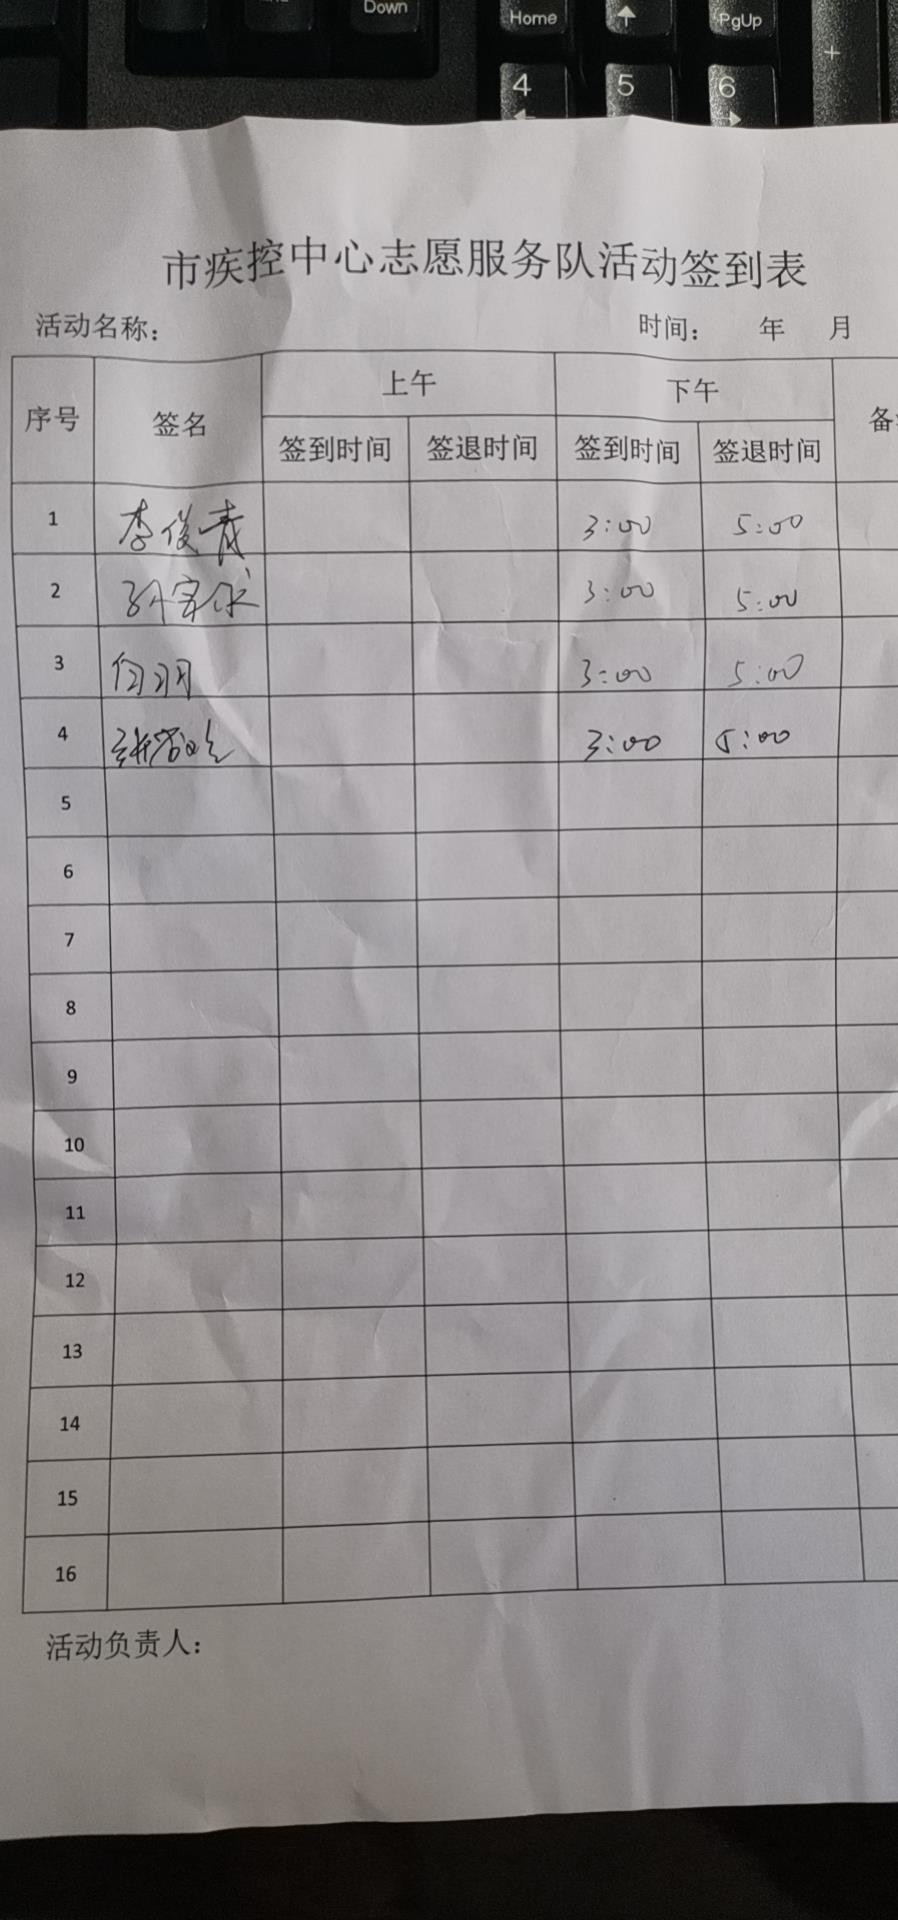 Down
Home ↑ PgUp
+
4 5 6
市疾控中心志愿服务队活动签到表
活动名称： 时间： 年 月
序号 签名 上午 下午 备
签到时间 签退时间 签到时间 签退时间
1 李俊青 3:00 5:00
2 3:00 5:00
3 白羽 3:00 5:00
4 3:00 5:00
5
6
7
8
9
10
11
12
13
14
15
16
活动负责人：